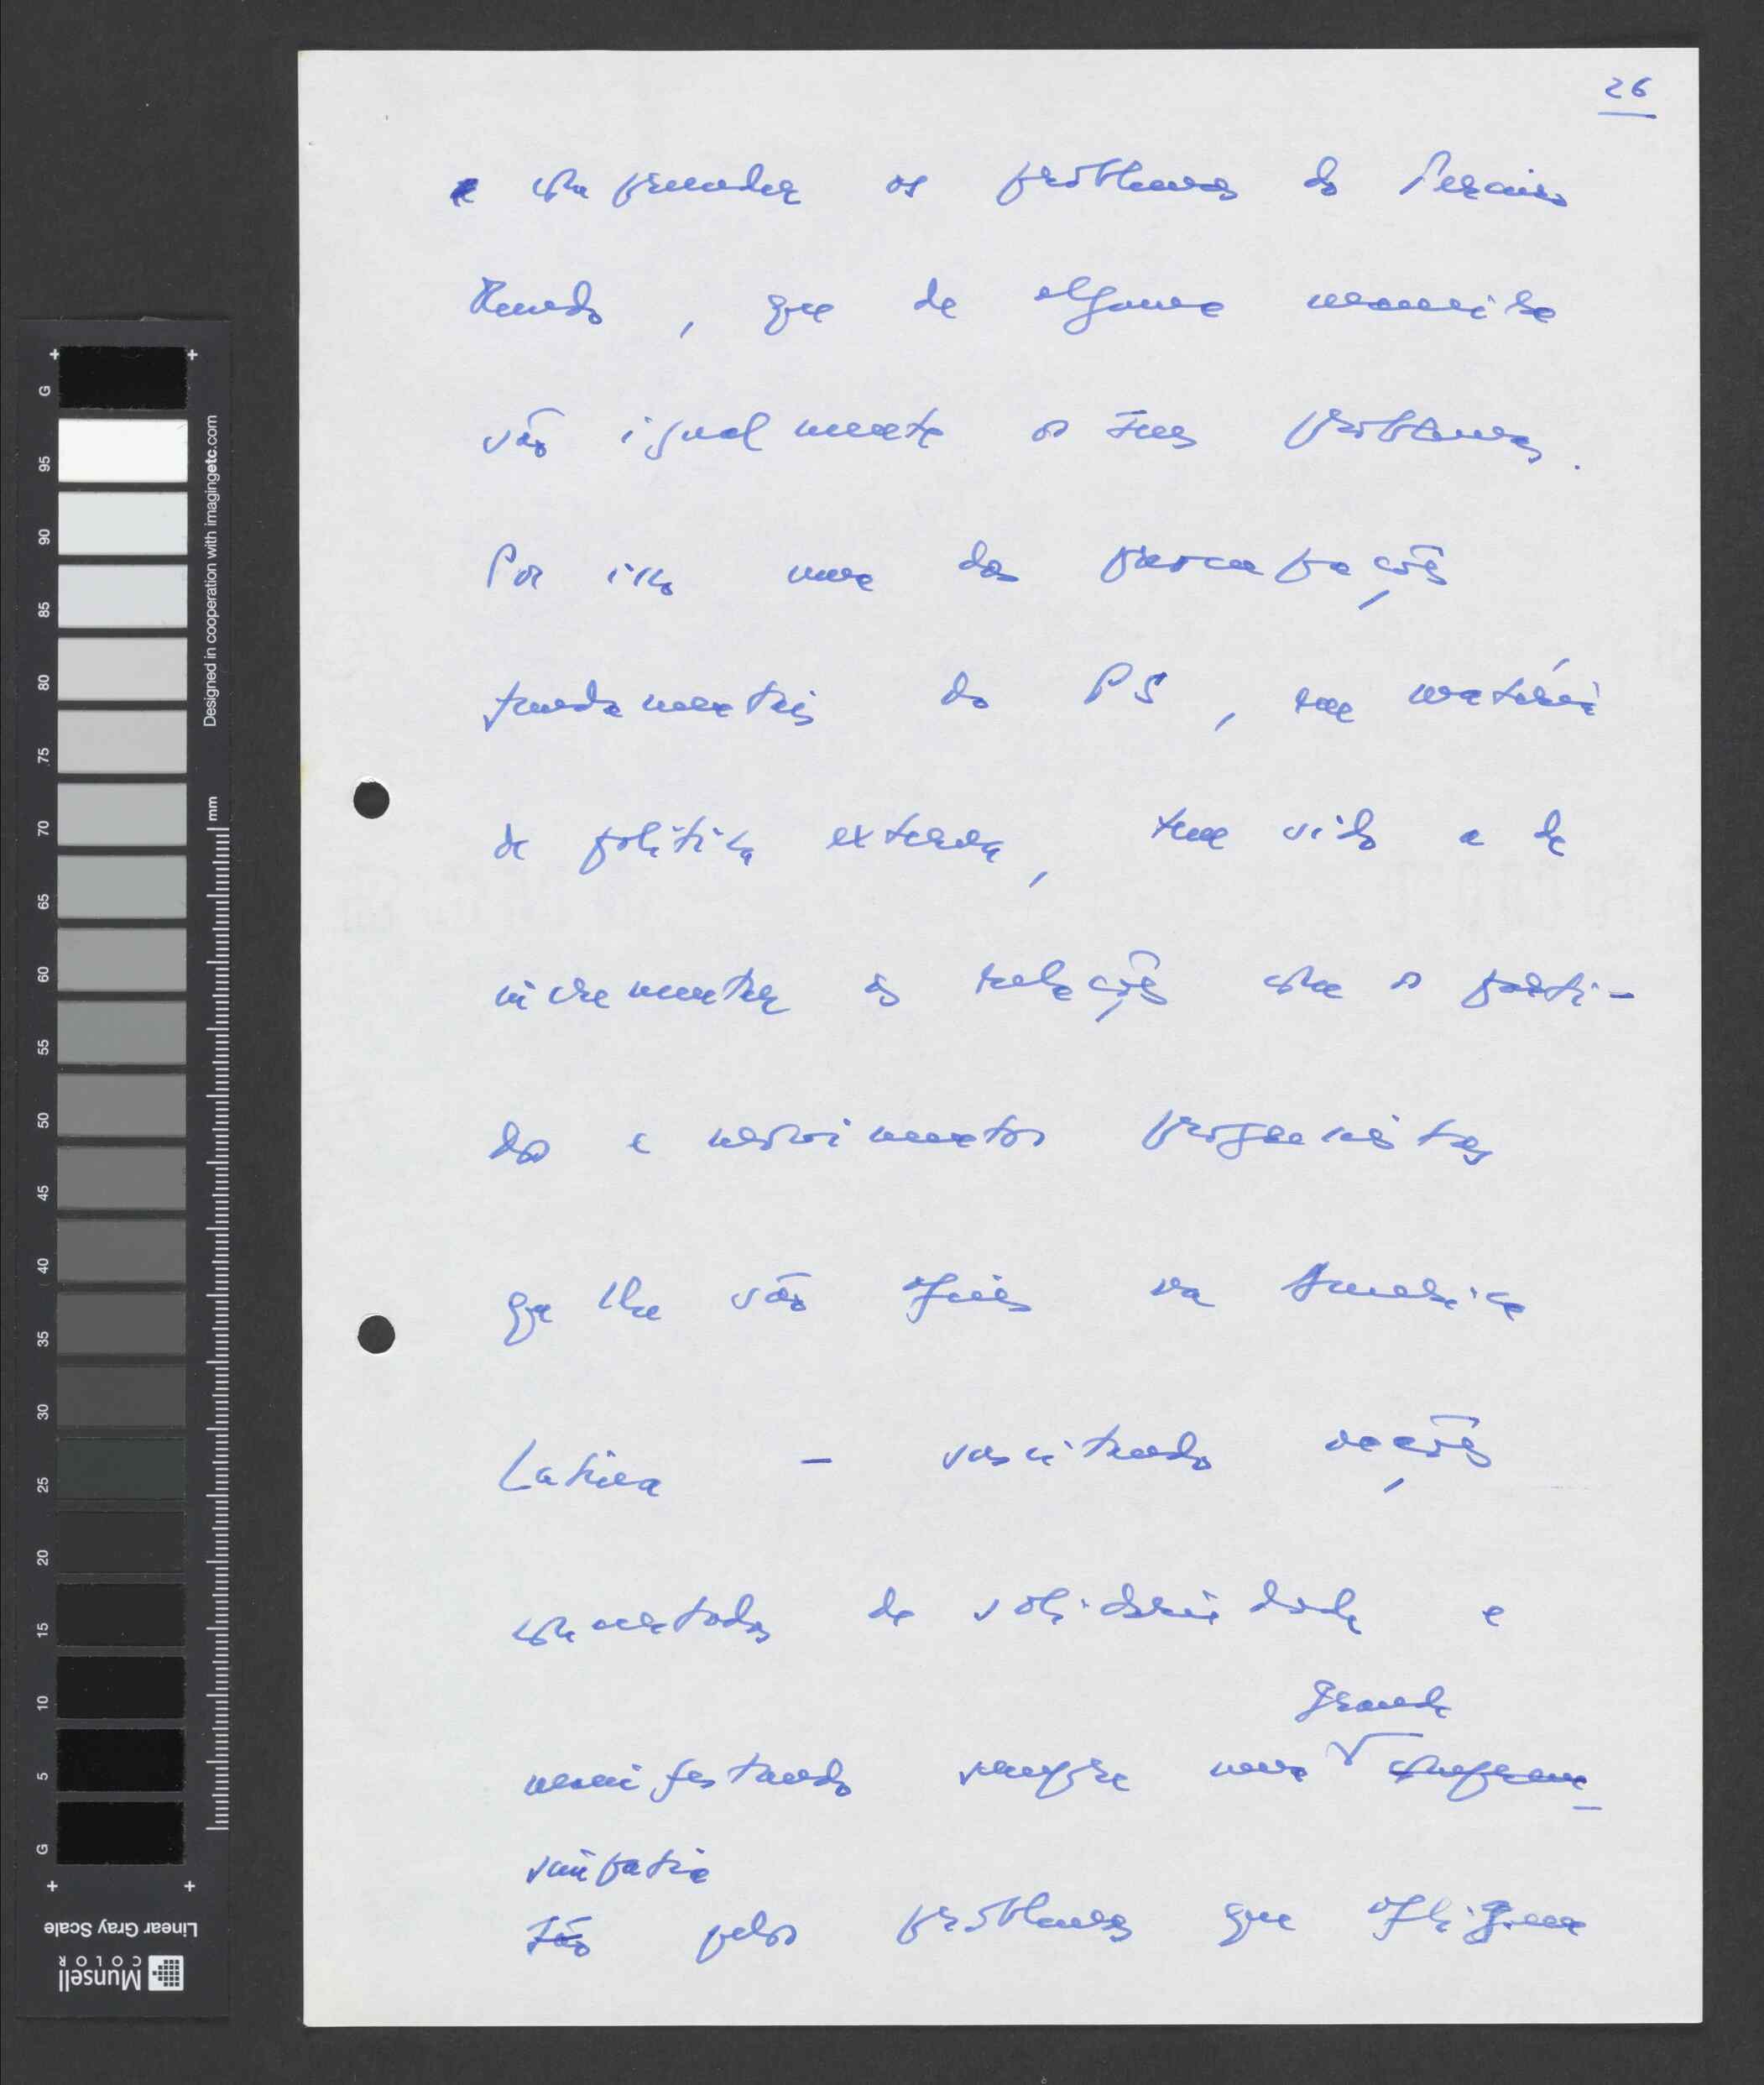 26
e compreender os problemas do Terceiro
Mundo, que de alguma maneira
são igualmente os seus problemas.
Por isso uma das preocupações
fundamentais do PS, em matéria
de política externa, tem sido a de
incrementar as relações com os parti-
dos e movimentos progressistas
que lhe são afins na América
Latina - suscitando acções
concertadas de solidariedade e
grande
manifestando sempre uma compreen-
simpatia
são pelos problemas que afligem
+ +
G 95 90 85 80 75 70 65 60 55 50 45 40 35 30 25 20 15 10 5 G
+ +
Designed in cooperation with imagingetc.com
mm
Linear Gray Scale
Munsell
COLOR